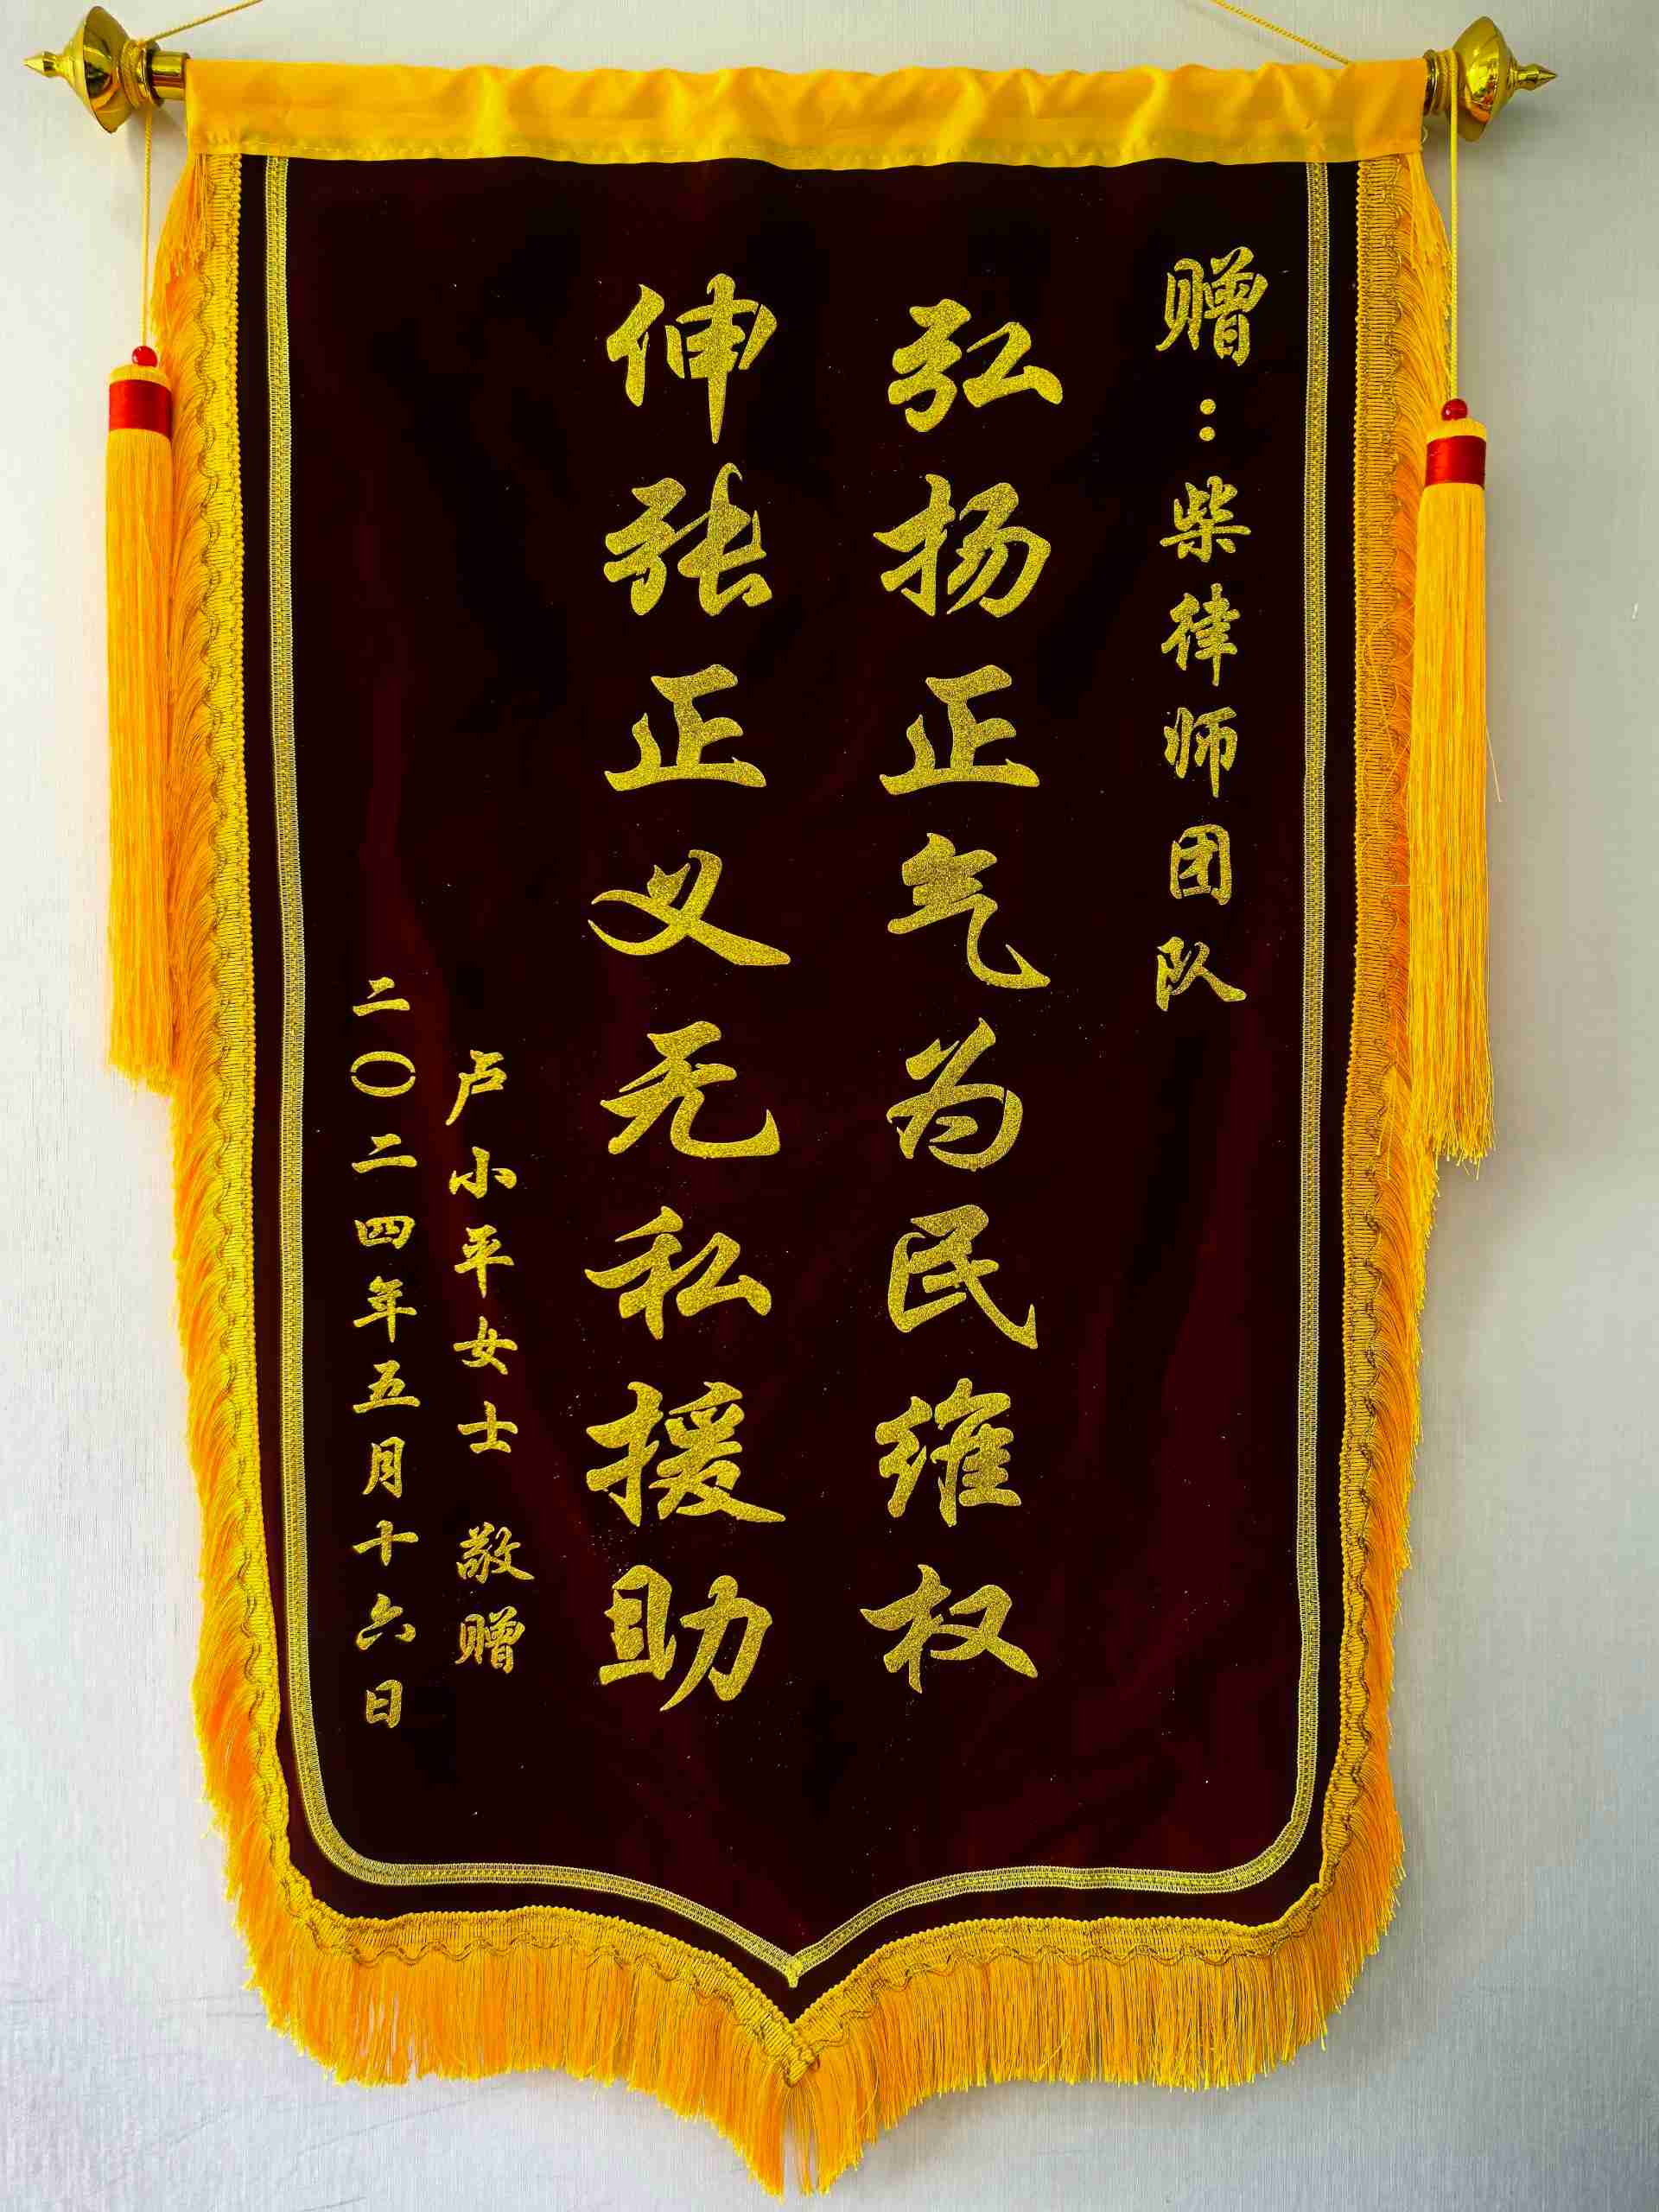 赠：柴律师团队
弘扬正气为民维权
伸张正义无私援助
卢小平女士 敬赠
二〇二四年五月十六日